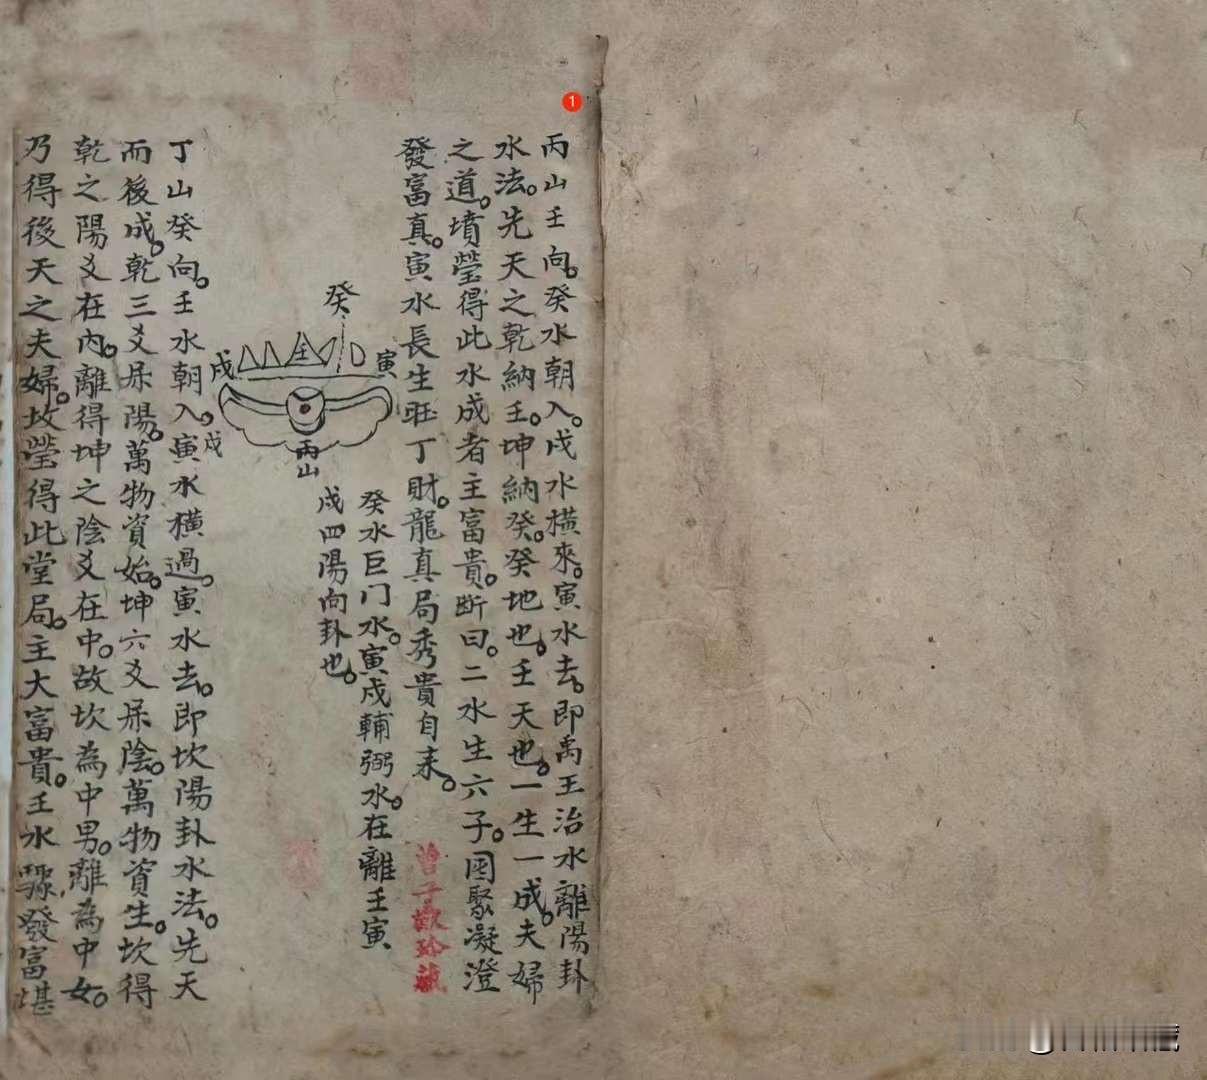 1
丙山壬向。癸水朝入。戌水橫來。寅水去。即禹王治水離陽卦
水法。先天之乾納壬。坤納癸。癸地也。壬天也。一生一成。夫婦
之道。墳瑩得此水成者主富貴。断曰。二水生六子。團聚凝澄
發富真。寅水長生旺丁財。龍真局秀貴自来。
癸
壬
寅
戌
丙山
癸水巨门水。寅戌輔弼水。在離壬寅
戌四陽向卦也。
曾子 珍藏
丁山癸向。壬水朝入。戌寅水橫過。寅水去。即坎陽卦水法。先天
而後成。乾三爻屬陽。萬物資始。坤六爻屬陰。萬物資生。坎得
乾之陽爻在內。離得坤之陰爻在中。故坎為中男。離為中女。
乃得後天之夫婦。故瑩得此堂局。主大富貴。壬水驟發富堪